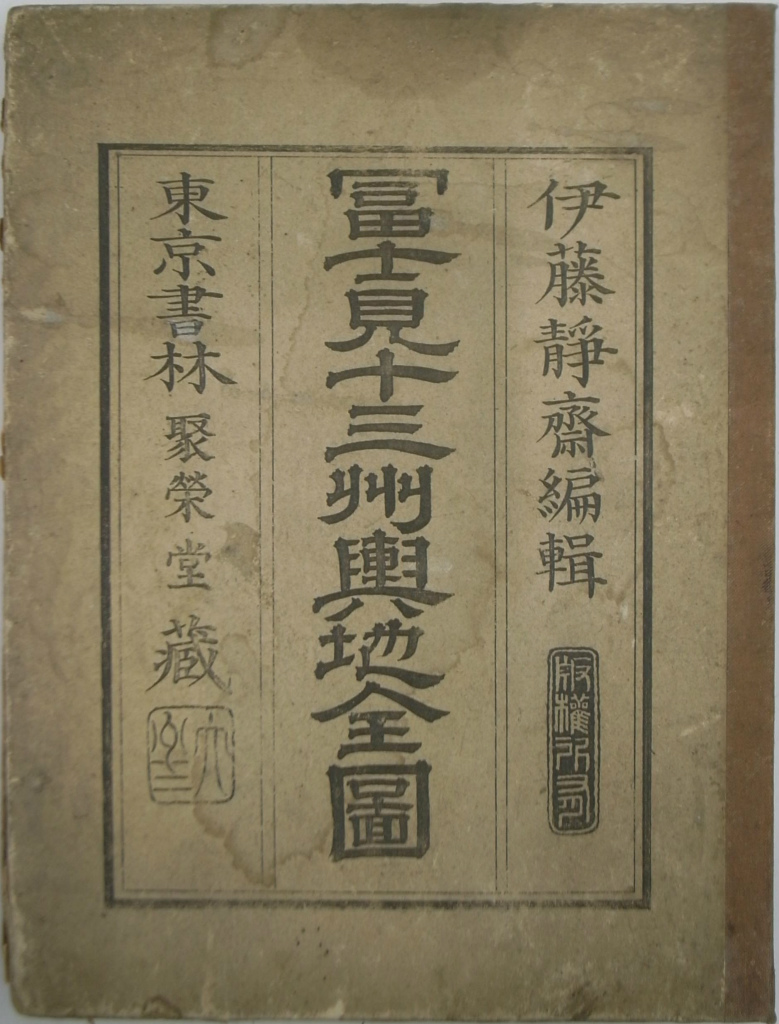 伊藤靜齋編輯
版權所有
冨士見十三州輿地全圖
東京書林 聚榮堂藏